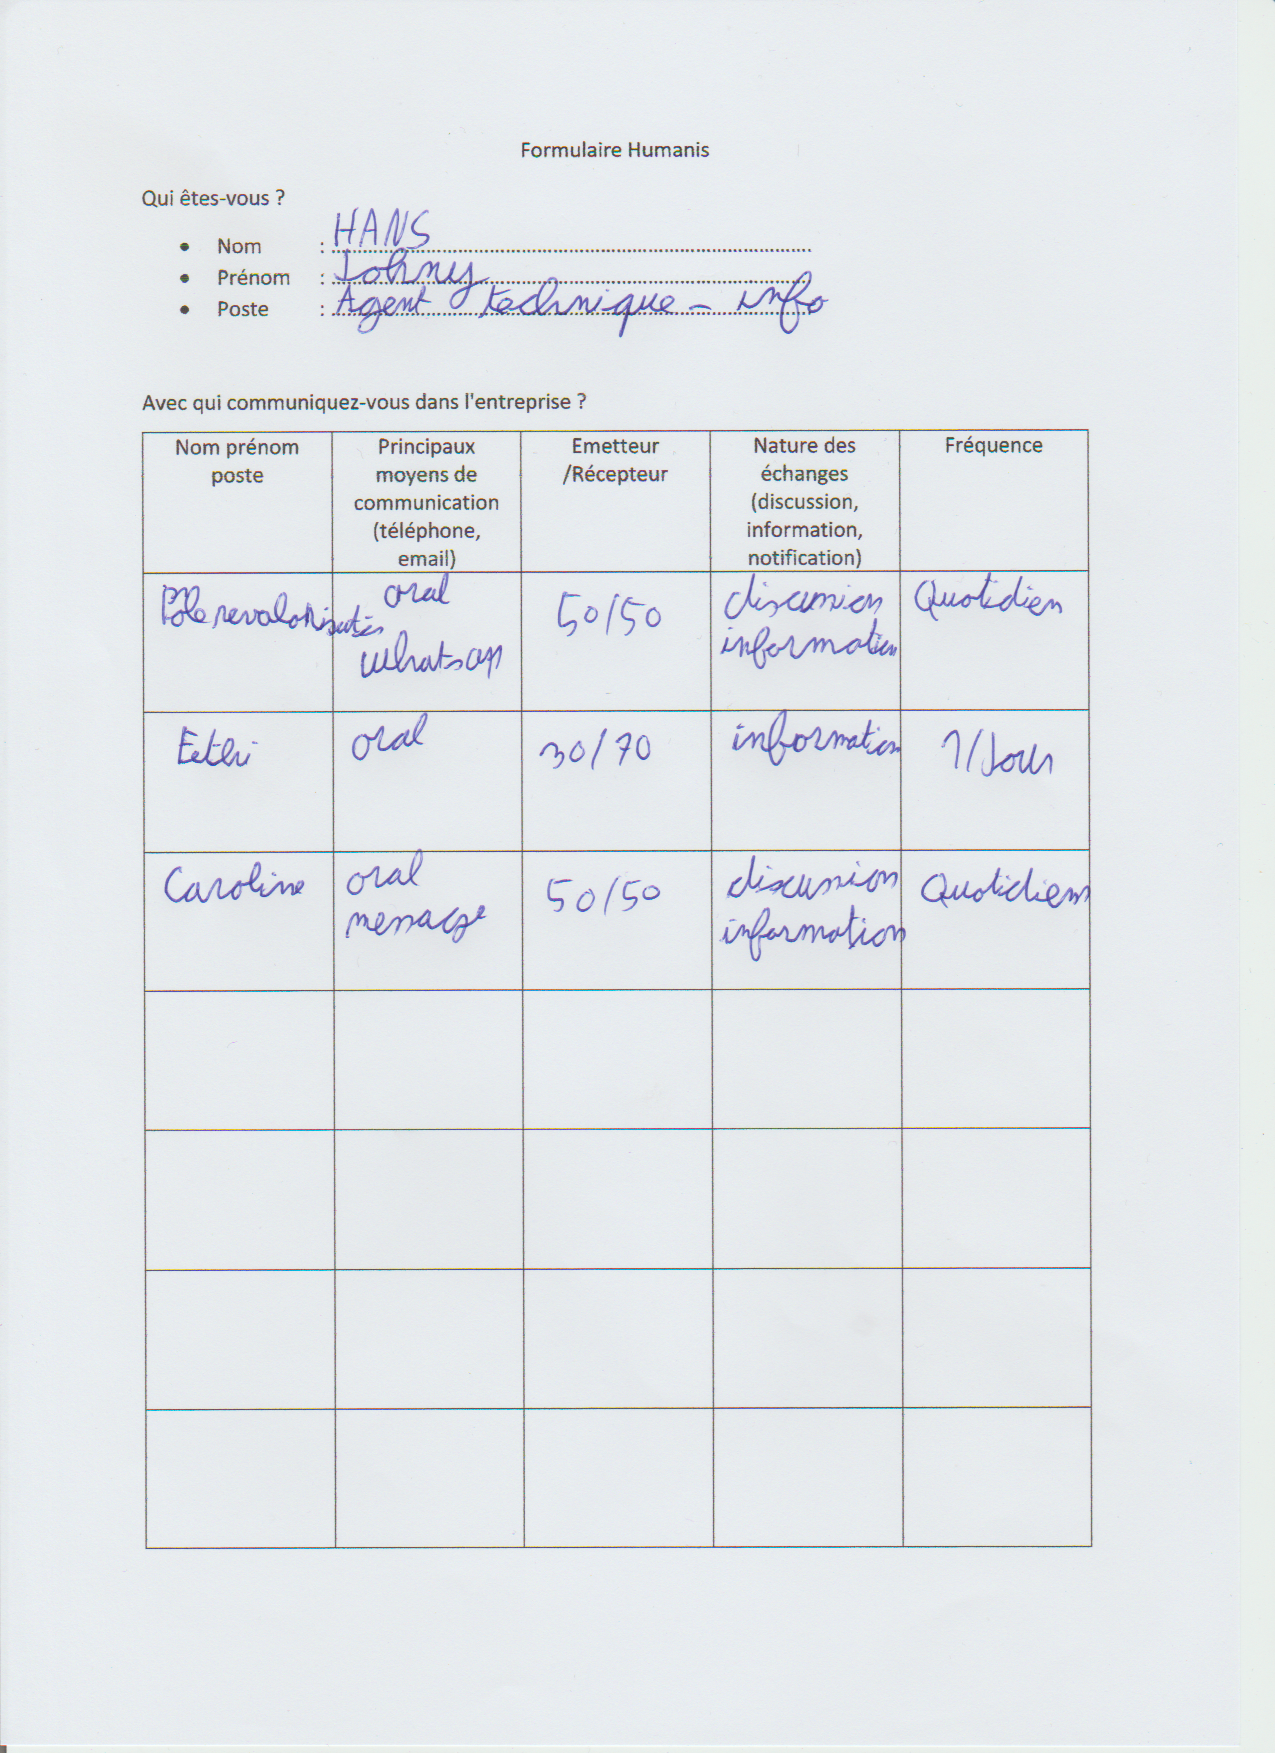 Formulaire Humanis
Qui êtes-vous ?
• Nom : HANS
• Prénom : Johny
• Poste : Agent technique - info
Avec qui communiquez-vous dans l'entreprise ?
Nom prénom
poste
Principaux
moyens de
communication
(téléphone,
email)
Emetteur
/Récepteur
Nature des
échanges
(discussion,
information,
notification)
Fréquence
Pôle revalorisation
oral
whatsapp
50/50
discussion
information
Quotidien
oral
30/70
information
1/Jour
Caroline
oral
message
50/50
discussion
information
Quotidiem